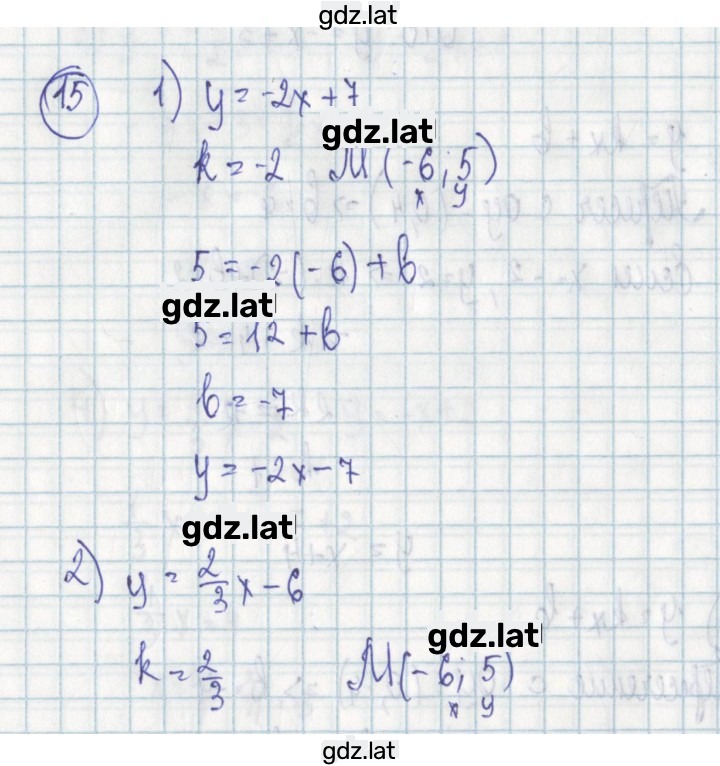 gdz.lat
15 1) y = -2x + 7
gdz.lat
k = -2 M(-6; 5)
x y
5 = -2(-6) + b
gdz.lat
5 = 12 + b
b = -7
y = -2x - 7
gdz.lat
2) y = 2/3 x - 6
gdz.lat
k = 2/3 M(-6; 5)
x y
gdz.lat